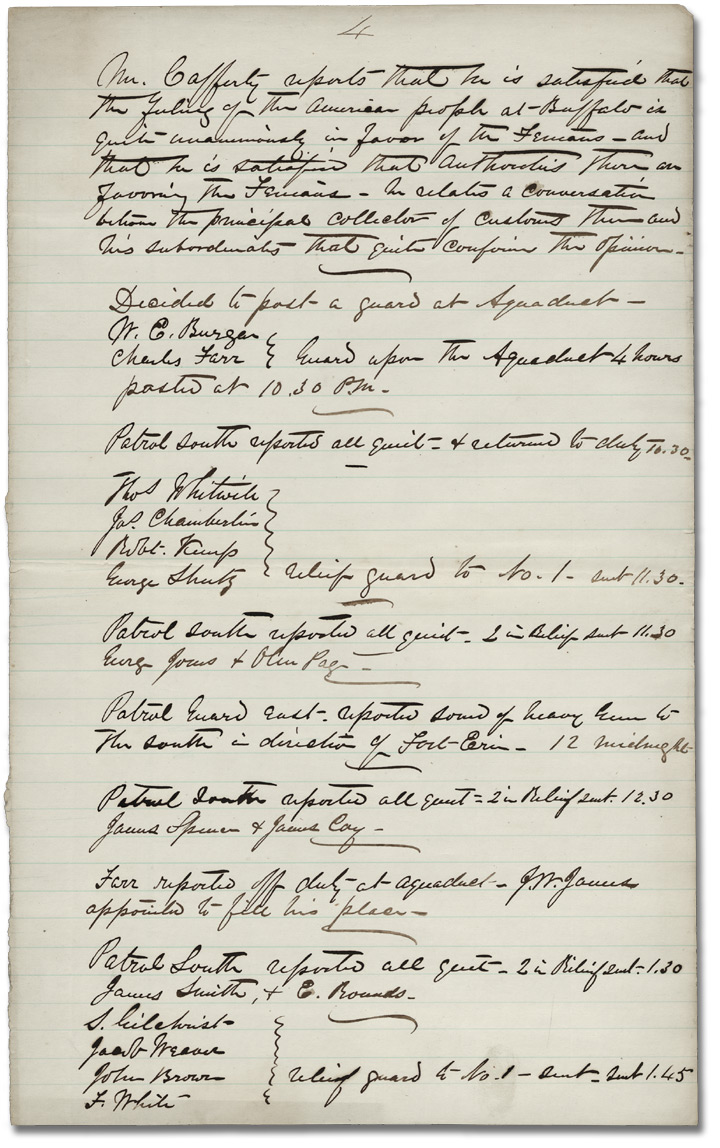 4
Mr. Cafferty reports that he is satisfied that
the feeling of the American people at Buffalo is
quite unanimously in favor of the Fenians - and
that he is satisfied that Authorities there are
favoring the Fenians - he relates a conversation
between the principal collector of Customs there and
his subordinates that quite confirm the opinion -
Decided to post a guard at Aquaduct -
W. E. Burgar
Charles Farr } Guard upon the Aquaduct 4 hours
posted at 10.30 P.M. -
Patrol south reported all quiet - & returned to duty 10.30 -
Thos Whitwill
Jas. Chamberlin
Robt. Kemp
George Shutz } relief guard to No. 1 - sent 11.30 -
Patrol south reported all quiet - 2 in Relief sent 11.30
George Jones & Page -
Patrol Guard east - reported sound of heavy Gun to
the south in direction of Fort-Erie - 12 midnight -
Patrol South reported all quiet - 2 in Relief sent. 12.30
James Spencer & James Coy -
Farr reported off duty at aquaduct - J. W. James
appointed to fill his place -
Patrol South reported all quiet - 2 in Relief sent - 1.30
James Smith, & E. Rounds -
S. Gilchrist
Jacob Weaver
John Brown } relief guard to No. 1 - sent - sent 1.45
F. White